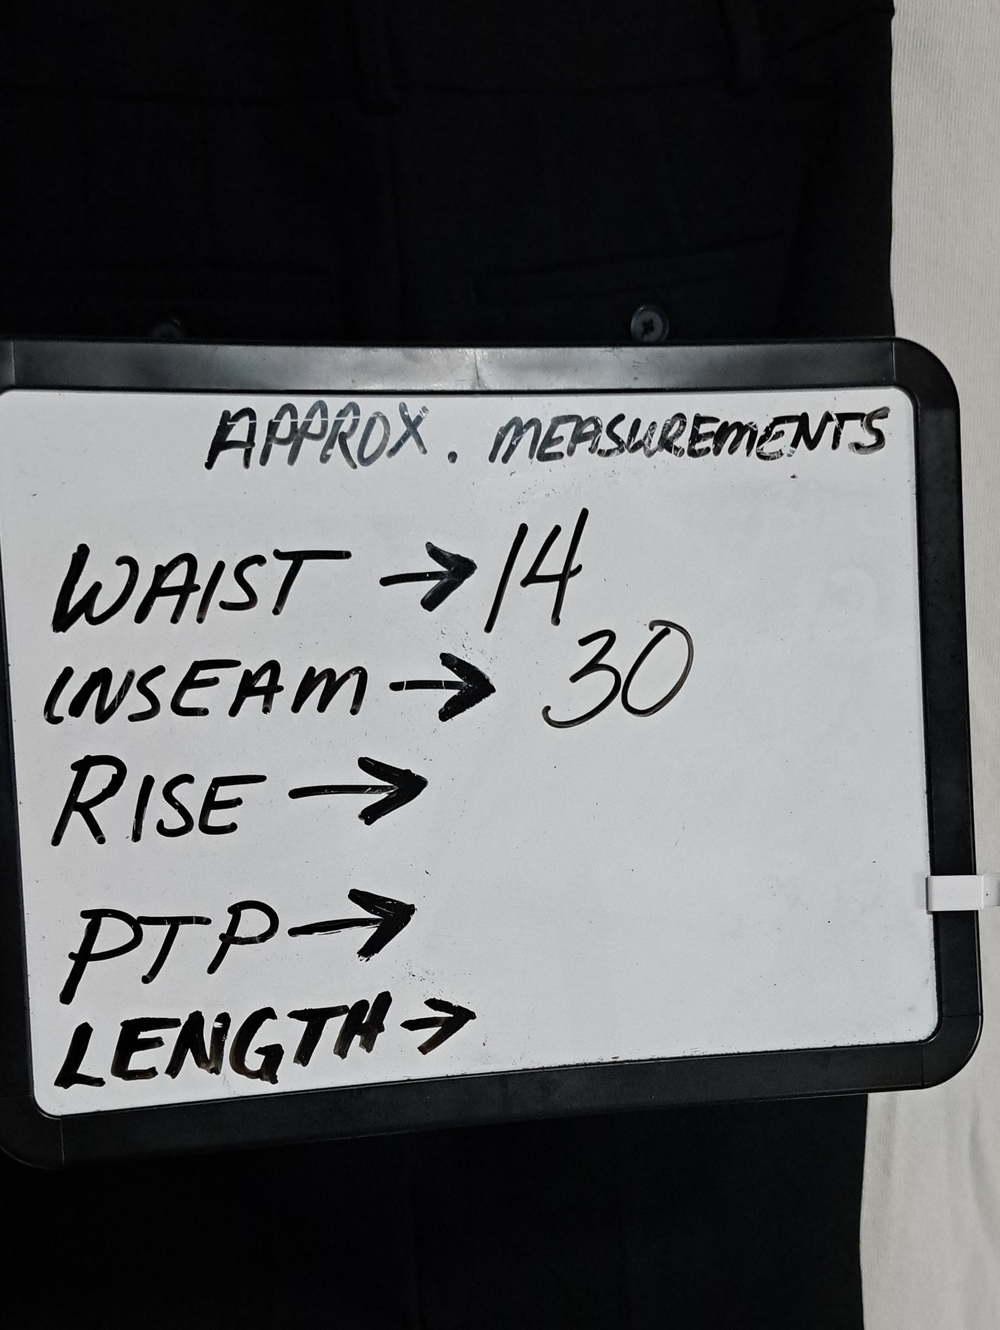 APPROX. MEASUREMENTS
WAIST → 14
INSEAM → 30
RISE →
PTP →
LENGTH →